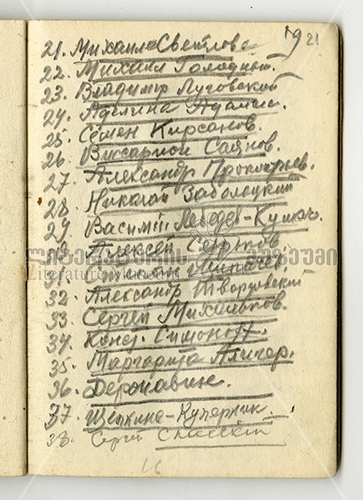 921
21. Михаил Светлов
22. Михаил Голодный.
23. Владимир Луговской
24. Аделина Адалис.
25. Семен Кирсанов.
26. Виссарион Саянов.
27. Александр Прокофьев.
28. Николай Заболоцкий
29. Василий Лебедев-Кумач.
Алексей Сурков
ლიტერატურის მუზეუმი
Literature Museum
31.
32. Александр Твардовский
33. Сергей Михалков.
34. Конст. Симонов.
35. Маргарита Алигер.
36. Державин.
37. Щепкина-Куперник.
38. Сергей Спасский
16